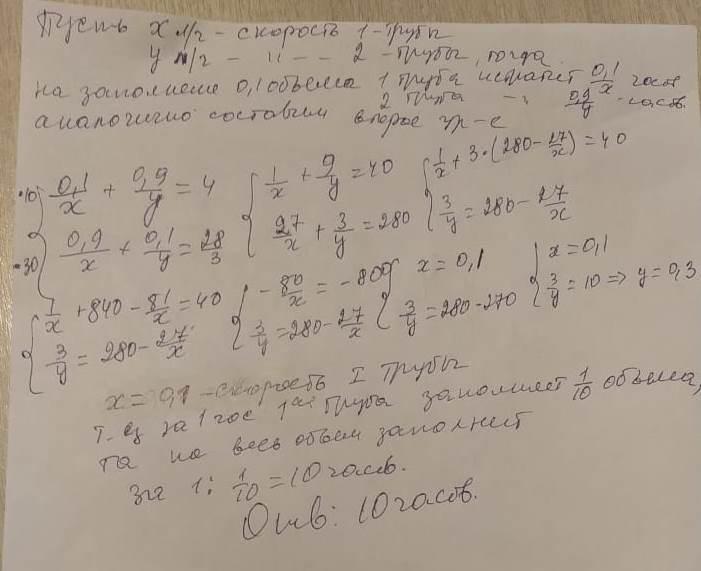 Пусть x л/г - скорость 1-трубы
y л/г - " - - 2 - трубы, тогда
на заполнение 0,1 объема 1 труба истратит 0,1/x часа
2 труба -"- 0,9/y часов.
аналогично составим второе ур-е
·10 { 0,1/x + 0,9/y = 4 { 1/x + 9/y = 40 { 1/x + 3·(280 - 27/x) = 40
·30 0,9/x + 0,1/y = 28/3 27/x + 3/y = 280 3/y = 280 - 27/x
{ 1/x + 840 - 81/x = 40 { - 80/x = - 800 { x = 0,1 { x = 0,1
3/y = 280 - 27/x 3/y = 280 - 27/x 3/y = 280 - 270 3/y = 10 => y = 0,3
x = 0,1 - скорость I трубы
т.е. за 1 час 1ая труба заполняет 1/10 объема,
то весь объем заполнит
за 1 : 1/10 = 10 часов.
Отв: 10 часов.